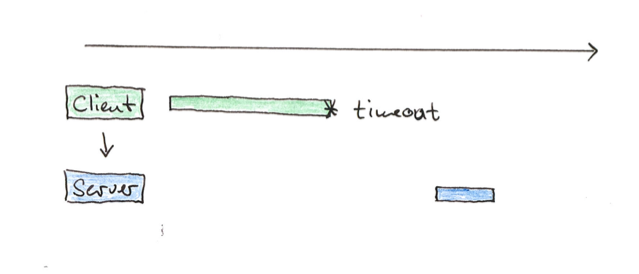 Client
timeout
Server